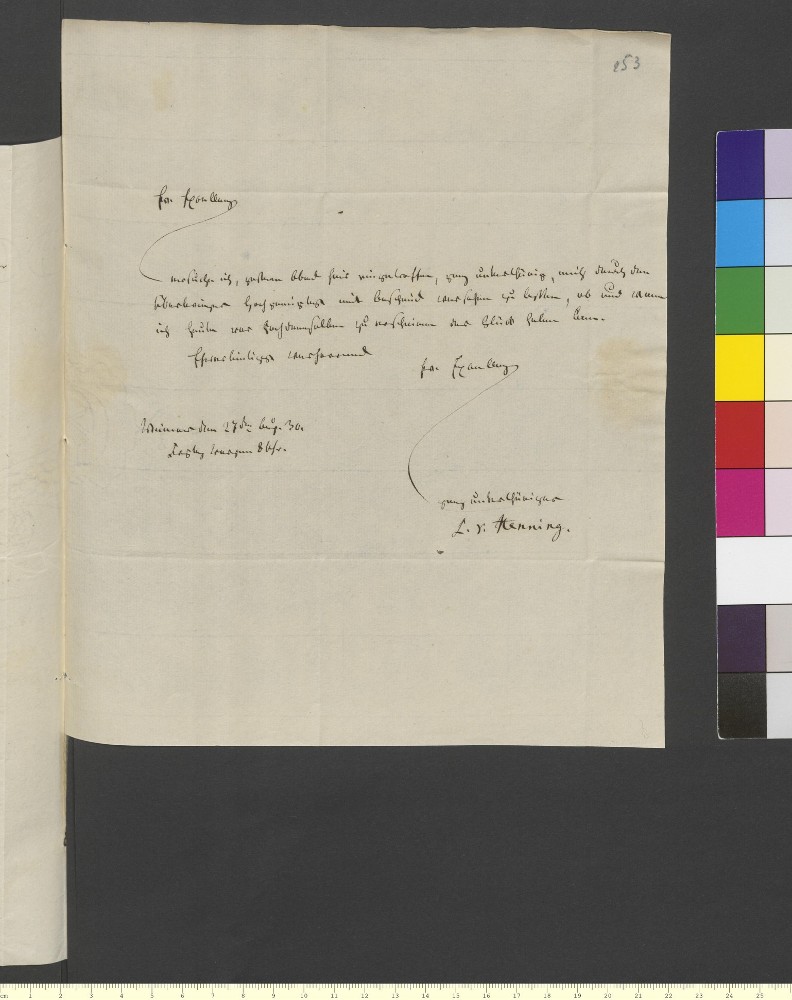 253
Ew. Excellenz
ersuche ich, gestern Abend hier eingetroffen, ganz unterthänig, mich durch den
Überbringer hochgeneigtest mit Bescheid versehen zu lassen, ob und wann
ich heute vor Hochdenenselben zu erscheinen das Glück haben kann.
Ehrerbietigst verharrend
Ew. Excellenz
Weimar den 27 Aug. 30.
Morgen 8 Uhr.
ganz unterthäniger
L. v. Henning.
cm 1 2 3 4 5 6 7 8 9 10 11 12 13 14 15 16 17 18 19 20 21 22 23 24 25